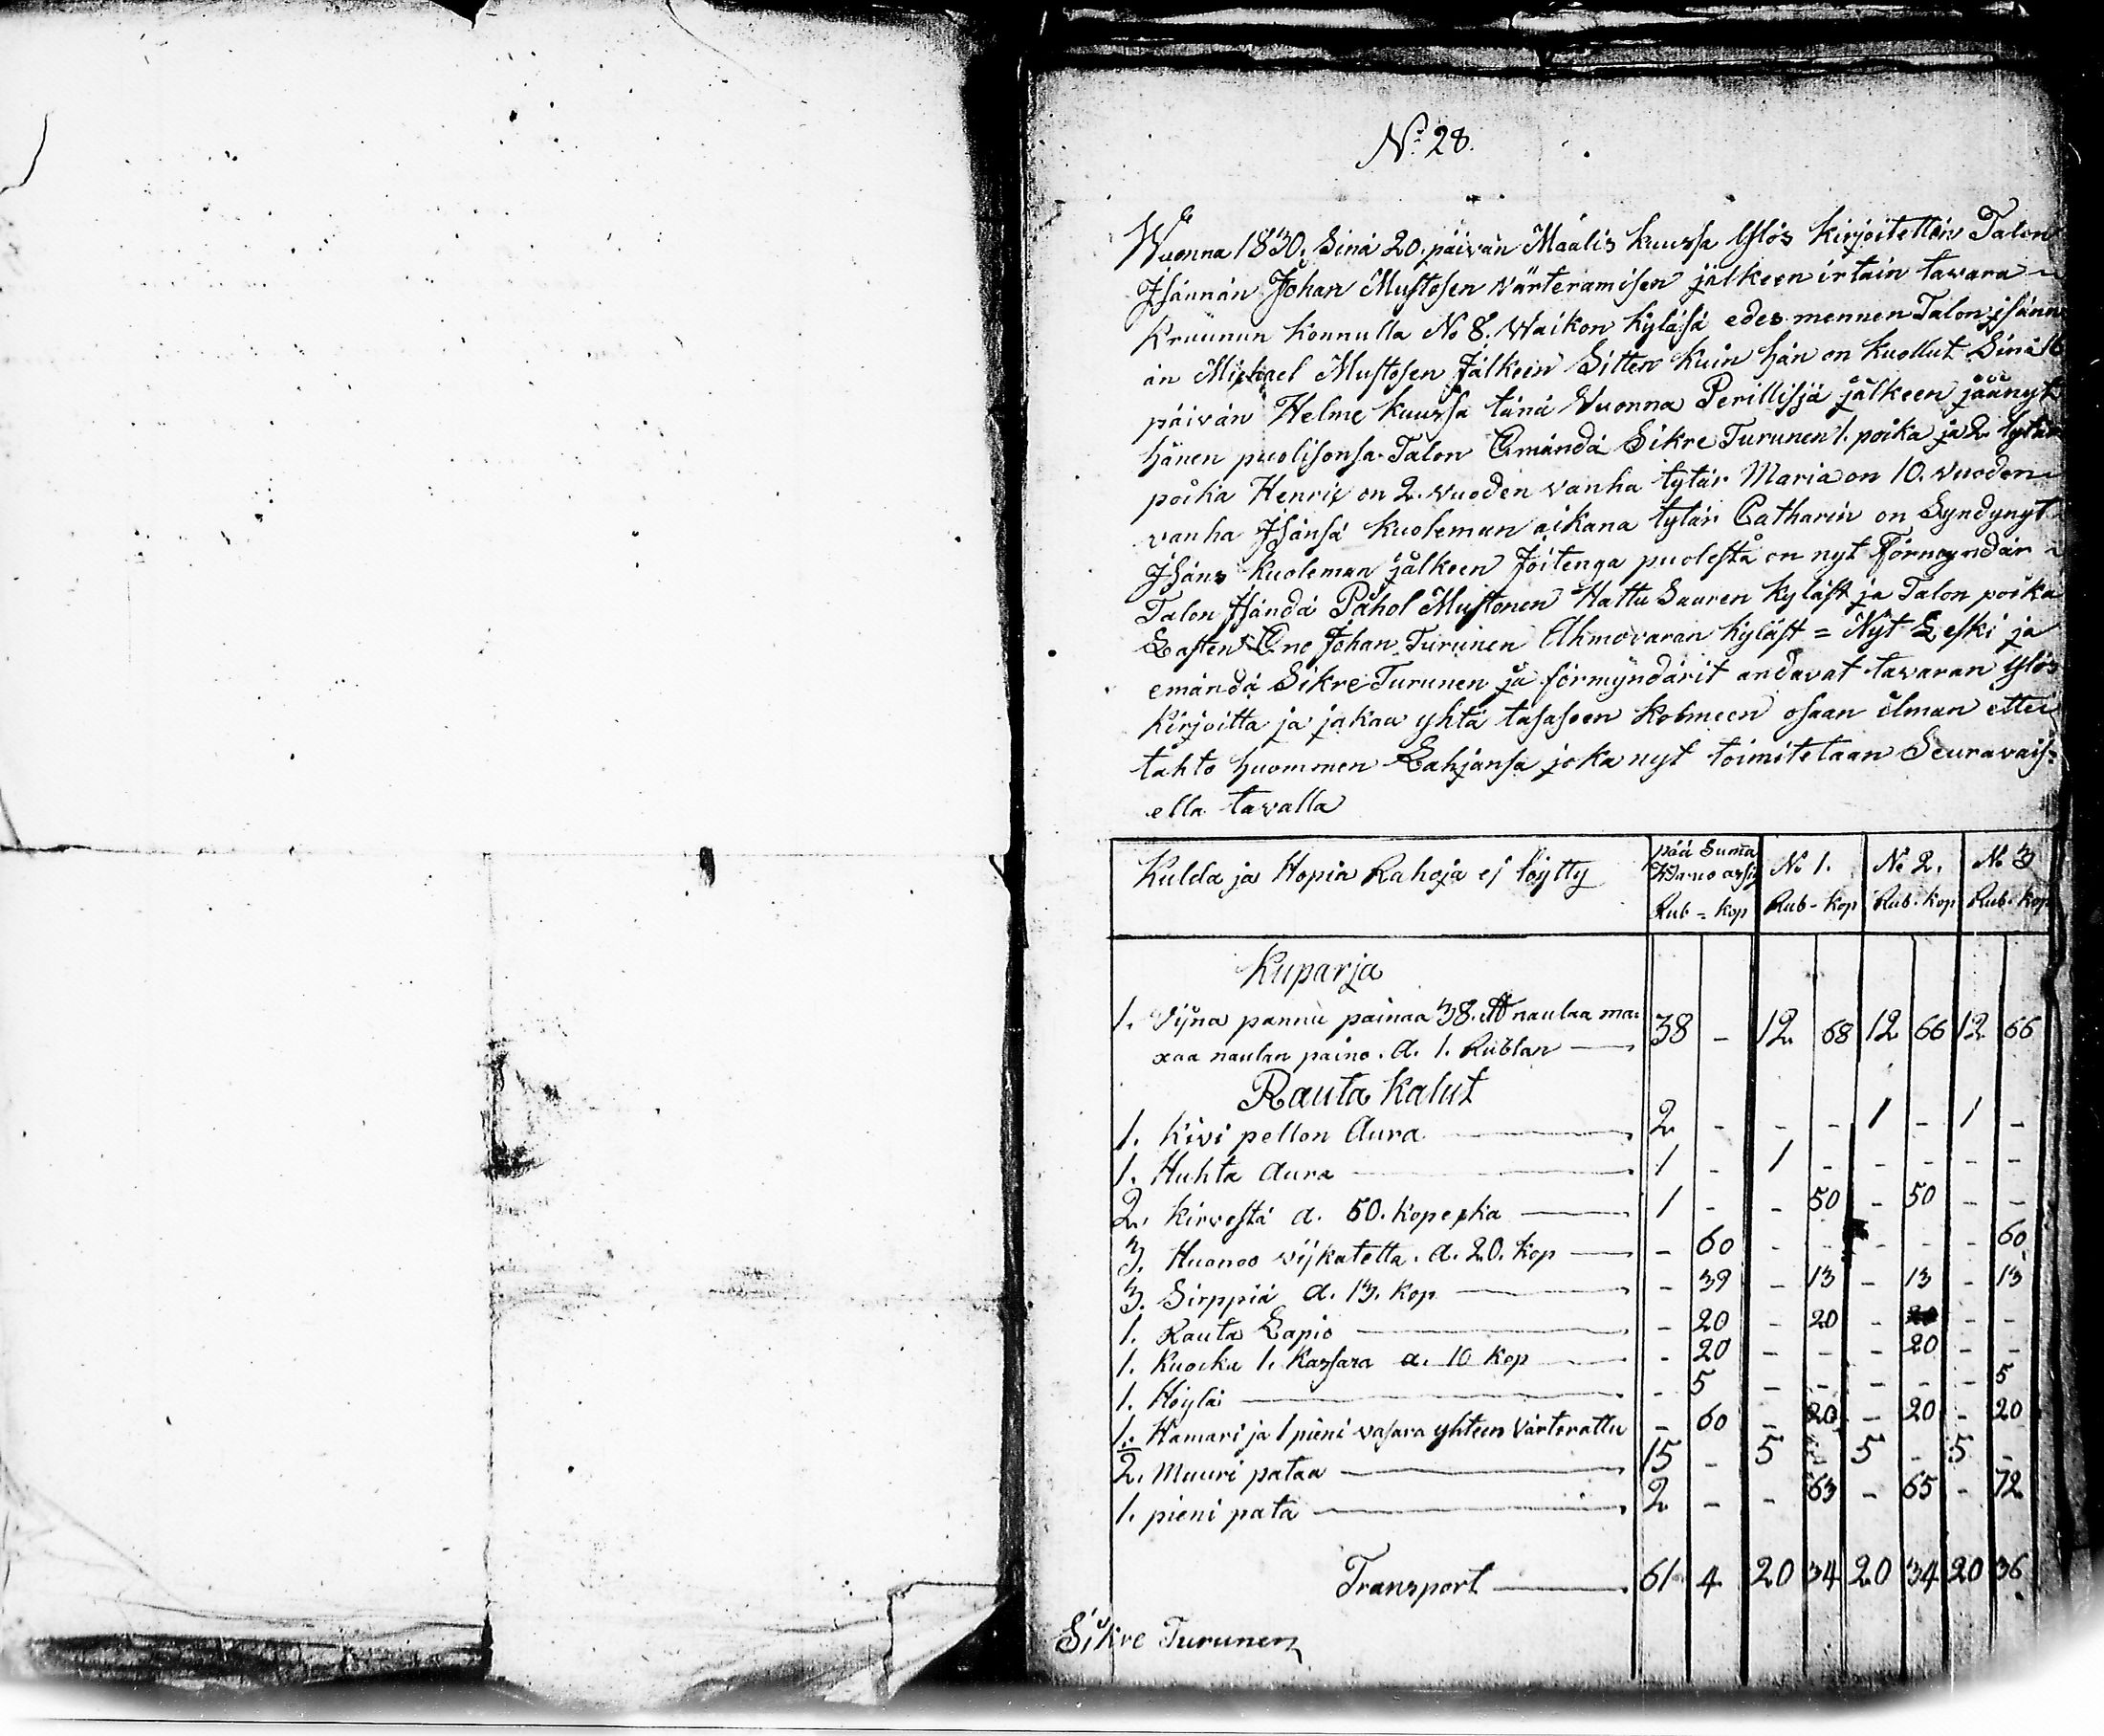 No. 28.
Wuonna 1830. Sinä 20. päivän Maalis kuussa Ylös kirjoitettin Talon
Jsännän Johan Mustosen Värteramisen jälkeen irtain tavara
Kruunun konnulla No 8. Waikon kylässä edes mennen Talon jsänn
än Michael Mustosen Jälkein Sitten kuin hän on kuollut Sinä 16
päivän Helme kuussa tänä Vuonna Perillisjä jälkeen jäänyt
hänen puolisonsa Talon Emändä Sikre Turunen 1. poika ja 2. tytär
poika Henric on 2. vuoden vanha tytär Maria on 10. vuoden
vanha Jsänsä kuoleman aikana tytär Catharin on Syndynyt
Jsäns kuoleman jälkeen Joitenga puolesta on nyt Förmyndär
Talon Jsändä Påhol Mustonen Hattu Saaren kyläst ja Talon poika
Lasten Eno Johan Turunen Ahmovaran kyläst = Nyt Leski ja
emändä Sikre Turunen ja förmyndärit andavat tavaran ylös
kirjoitta ja jakaa yhtä tasaseen kolmeen osaan ilman ettei
tahto huommen Lahjansa joka nyt toimitetaan Seuravais=
ella tavalla
Kulda ja Hopia Rahoja ej löytty pää Suma No 1. No 2. No 3
Rub = kop Rub - kop Rub - kop Rub - kop
Kuparja
1. Vijna pannu painaa 38. ℔ naulaa ma=
xaa naulan paino. a. 1. Rublan 38 - 12 68 12 66 12 66
Rauta kalut
1. Kivi pellon Aura 2 - - - 1 - 1 -
1. Huhta Aura 1 - 1 - - - - -
2. kirvestä a. 50. kopekka 1 - - 50 - 50 - -
3. Huonoo vijkatetta. a. 20. kop - 60 - - - - - 60
3. Sirppiä a. 13. kop - 39 - 13 - 13 - 13
1. Rauta Lapio - 20 - 20 - - -
1. Kuocka 1. Kassara a. 10 kop - 20 - - - 20 - -
1. Höylä - 5 - - - - - 5
1. Hamari ja 1 pieni vasara yhteen Värterattu - 60 - 20 - 20 - 20
2. Muuri pataa 15 - 5 5 - 5 -
1. pieni pata 2 - - 63 - 65 - 72
Transport 61 4 20 34 20 34 20 36
Sikre Turunen